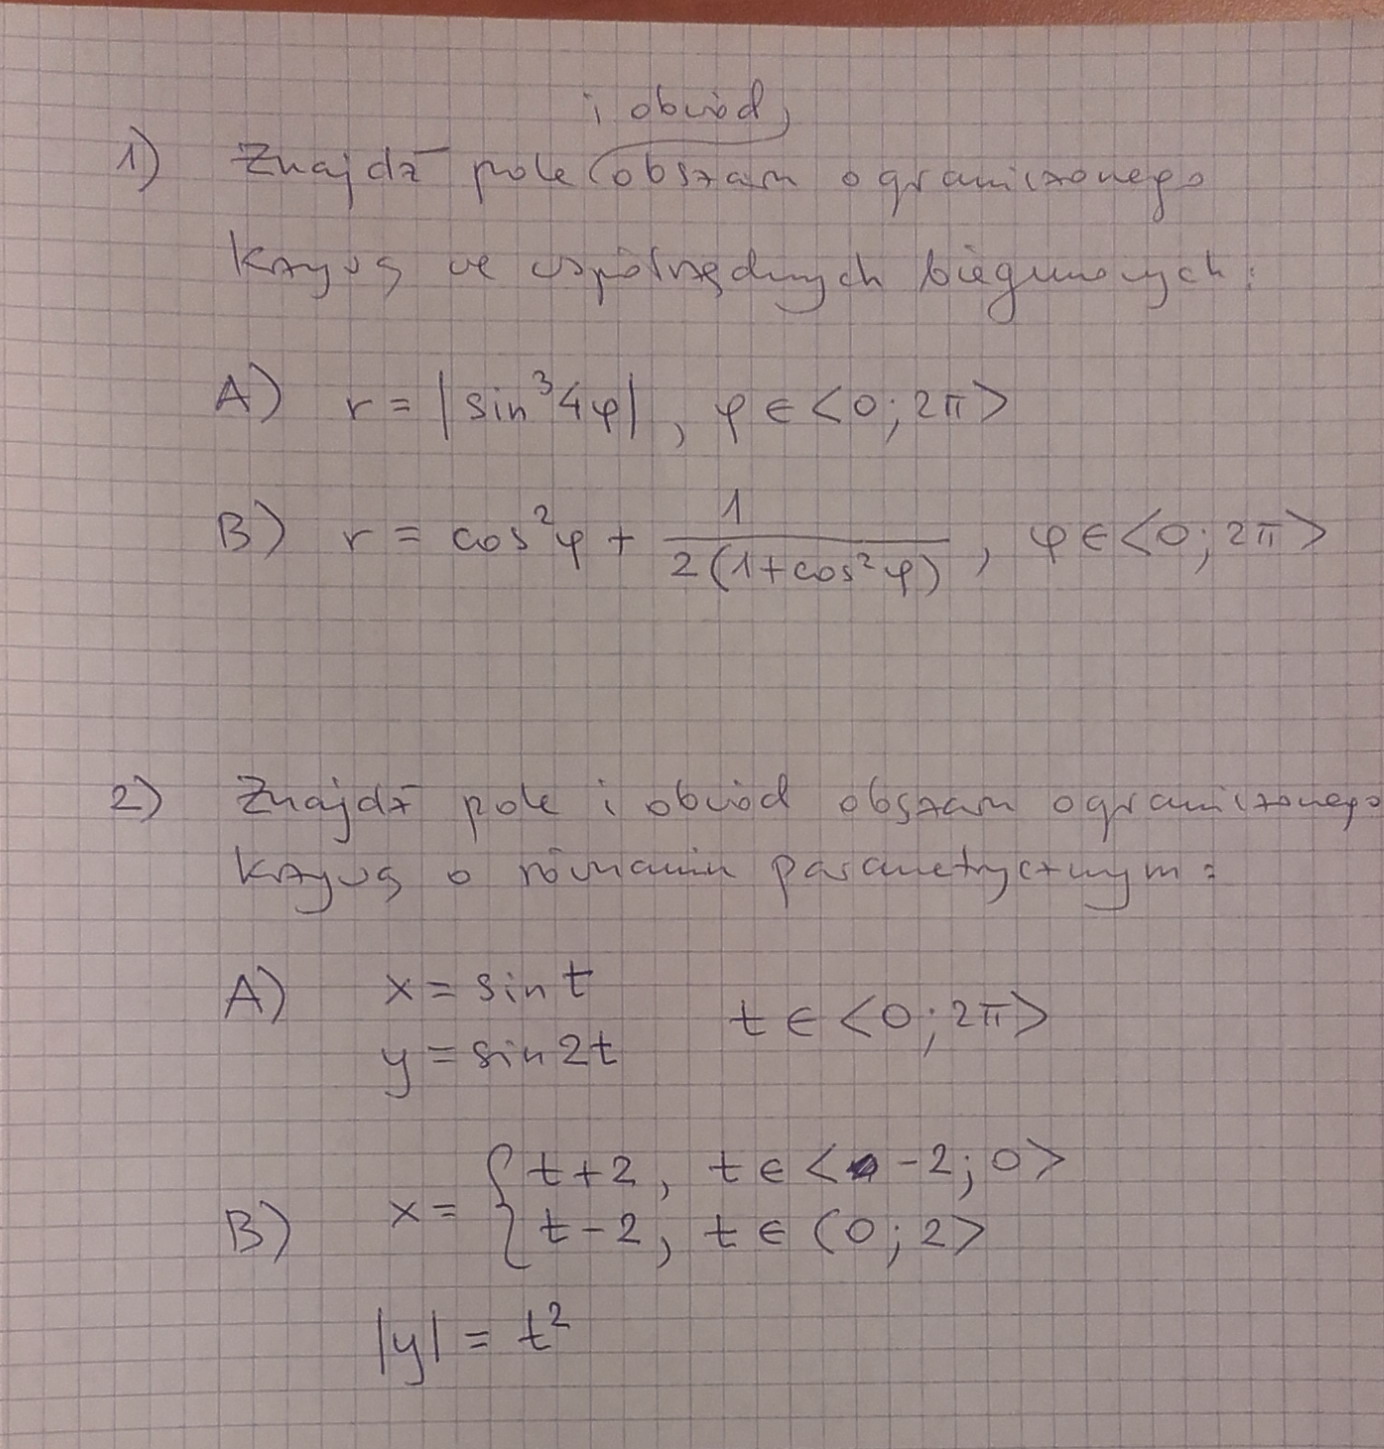 i obwód,
1) Znajdź pole obszaru ograniczonego
krzywą we współrzędnych biegunowych:
A) r = |sin³4φ|, φ∈<0;2π>
B) r = cos²φ + 1/(2(1+cos²φ)), φ∈<0;2π>
2) Znajdź pole i obwód obszaru ograniczonego
krzywą o równaniu parametrycznym:
A) x = sin t
y = sin2t t∈<0;2π>
B) x = { t+2, t∈<-2;0>
t-2, t∈(0;2>
|y| = t²